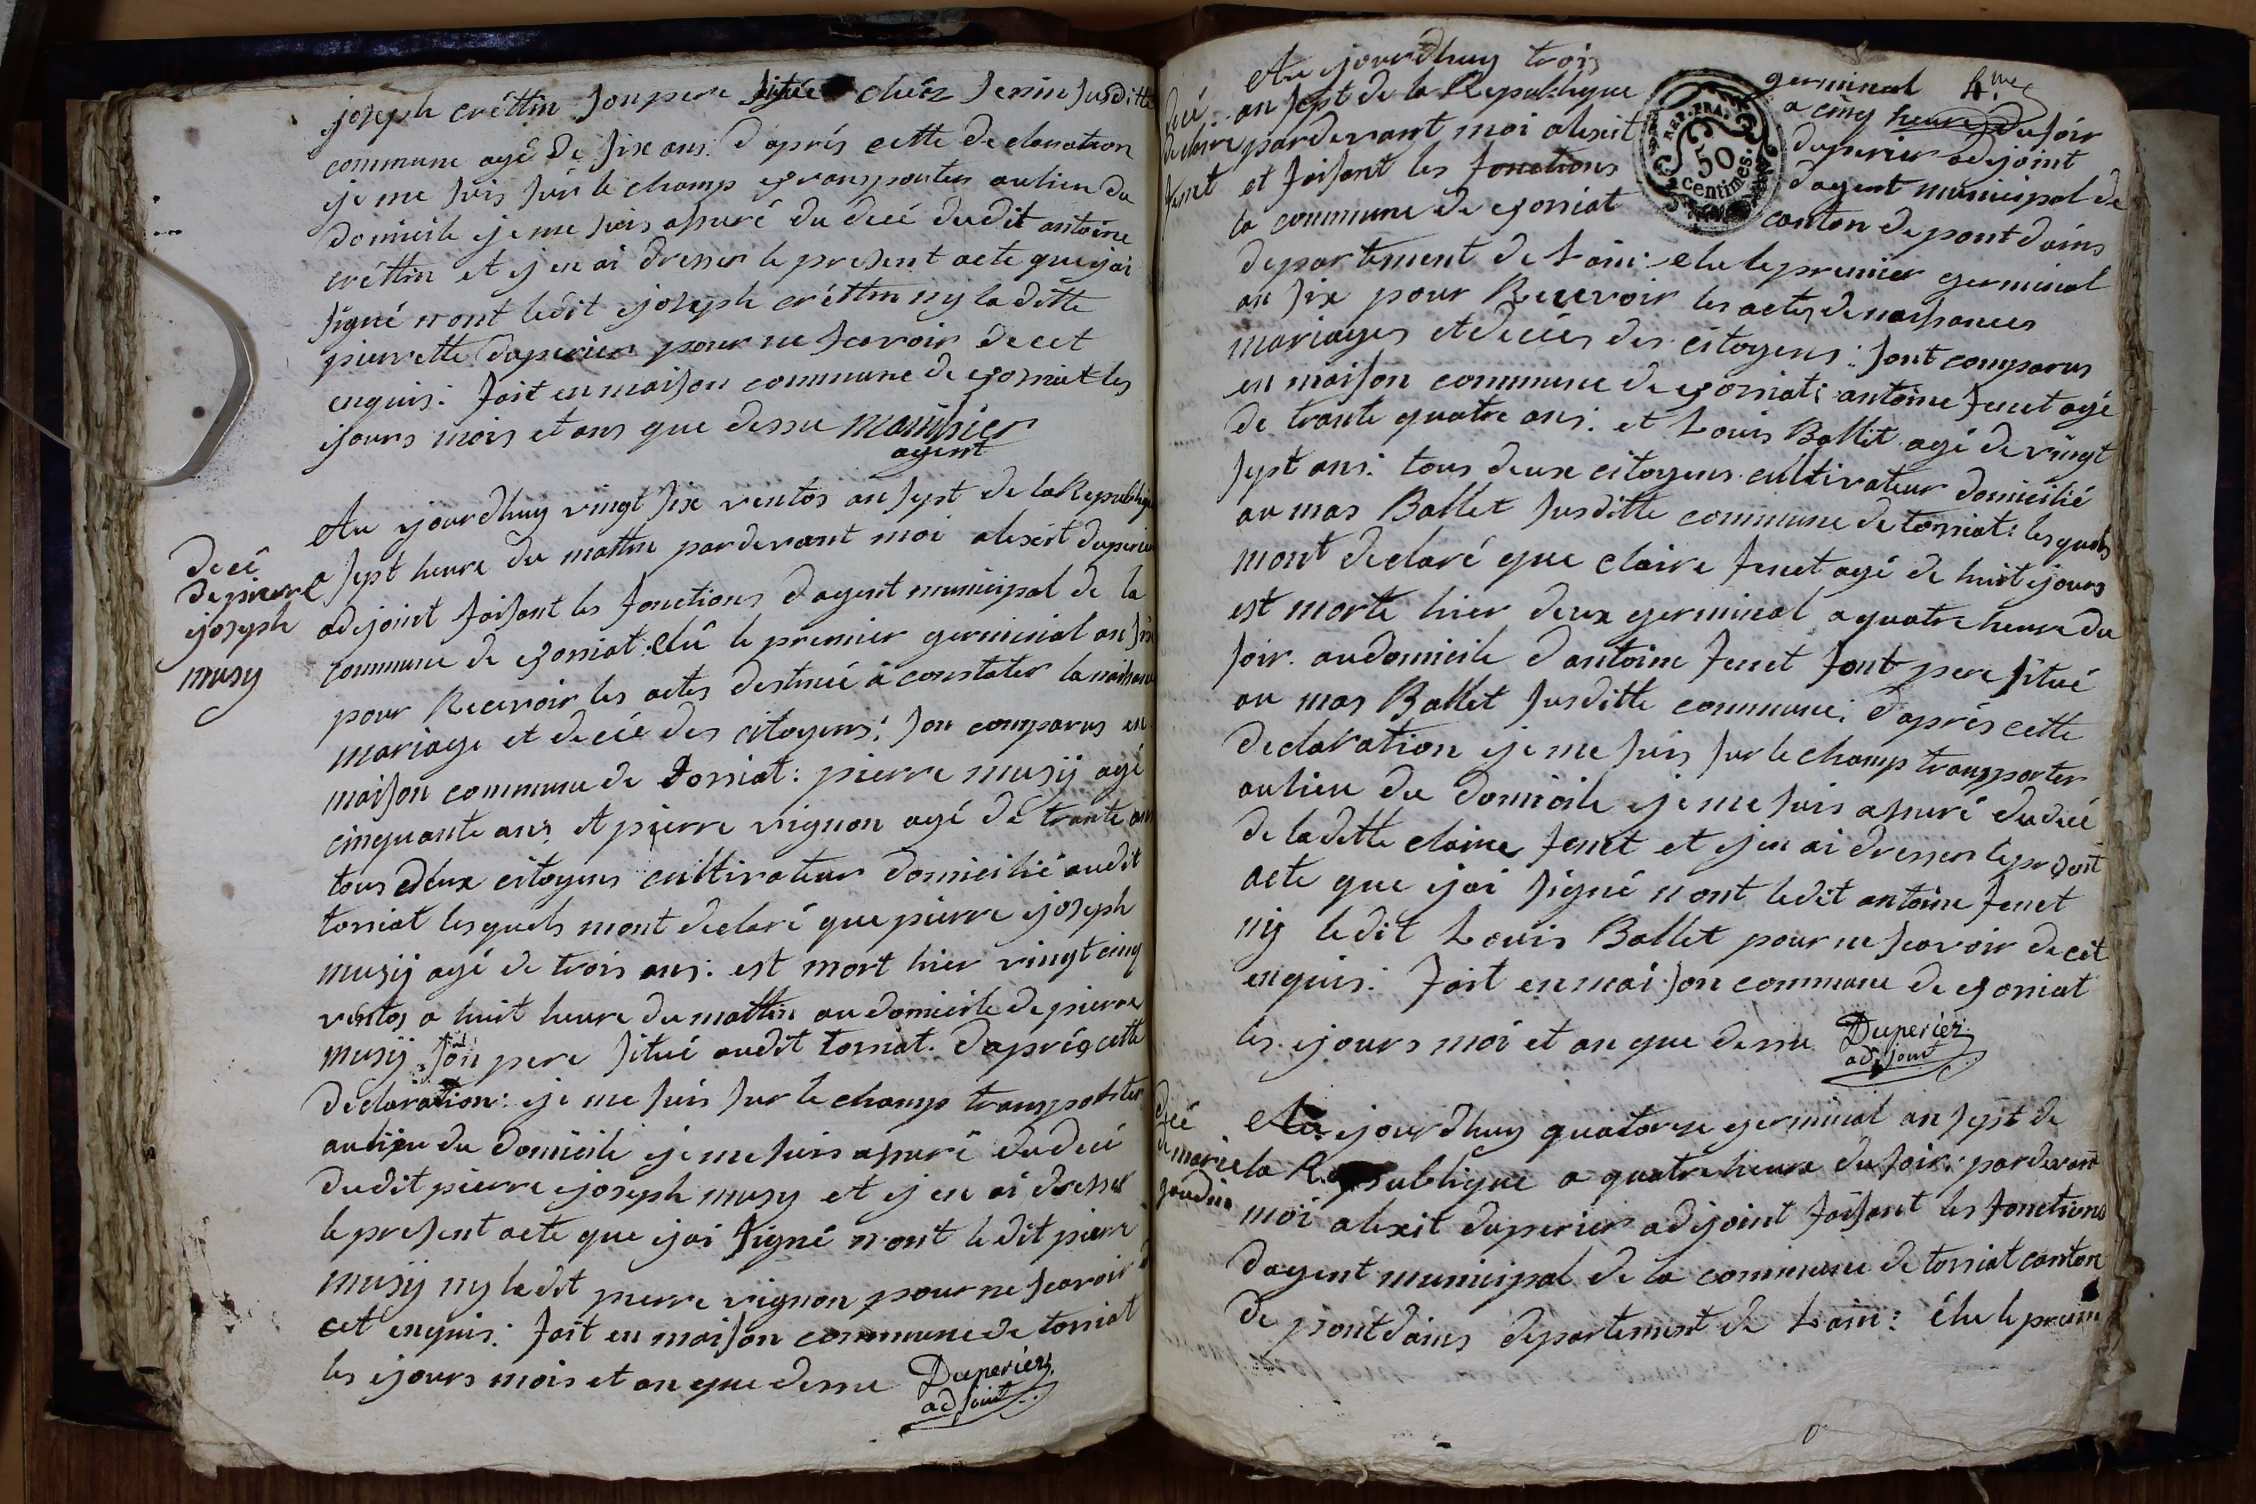 joseph crêttin son pere situé chéz Jenin susditte
commune agé de six ans. d'aprés cette declaration
je me suis sur le champ transporter au lieu du
domicile je me suis assuré du decé dudit antoine
crêttin et j en ai dresser le present acte que jai
signé n'ont ledit joseph crêttin ny laditte
pierrette duperier pour ne scavoir de cet
enquis: fait en maison commune de tossiat les
jours mois et ans que dessu
agent
decé
de pierre
joseph
musy
Au jourdhuy vingt six ventos an sept de la Republique
a sept heure du mattin pardevant moi alexit duperier
adjoint faisant les fonctions dagent municipal de la
commune de tossiat. elû le premier germinal an six
pour Recevoir les actes destiné à constater la naissance
mariage et decée des citoyens: son comparus en
maison commune de tossiat: pierre musij agé
cinquante ans et pierre vignon agé de trante ans
tous deux citoyens cultivateur domicilié audit
tossiat lesquels mont declaré que pierre joseph
musij agé de trois ans: est mort hier vingt cinq
ventos a huit heure du mattin au domicile de pierre
musij son pere situé audit tossiat. d'aprés cette
declaration: je me suis sur le champ transporter
au lieu du domicile je me suis assuré du decé
dudit pierre joseph musy et j en ai dresser
le present acte que jai signé n'ont ledit pierre
musij ny ledit pierre vignon pour ne scavoir d
cet enquis: fait en maison commune de tossiat
les jours mois et an que dessu Duperier
adjoint
4.me
decé
de claire
fenet
Au jourdhuy trois germinal
an sept de la Republique a cinq heure du soir
pardevant moi alexit duperier adjoint
et faisant les fonctions dagent municipal de
la commune de tossiat canton de pont dains
REP. FRA.
50
centimes.
departement de Lain: elu le premier germinal
an six pour Recevoir les actes de naissances
mariages et decées des citoyens: sont comparus
en maison commune de tossiat: antoine fenet agé
de trante quatre ans: et Louis Ballet agé de vingt
sept ans: tous deux citoyens cultivateur domicilié
au mas Ballet susditte commune de tossiat: lesquels
mont declaré que claire fenet agé de huit jours
est morte hier deux germinal a quatre heure du
soir. au domicile d'antoine fenet sont pere situé
au mas Ballet susditte commune: d'aprés cette
declaration je me suis sur le champ transporter
au lieu du domicile je me suis assuré du decé
de laditte claire fenet et j en ai dresser le present
acte que jai signé n'ont ledit antoine fenet
nij ledit Louis Ballet pour ne scavoir de cet
enquis: fait en maison commune de tossiat
les jours moi et an que dessu Duperier
adjoint
decé
de marie
Au jourdhuy quatorze germinal an sept de
la Republique a quatre heure du soir: pardevant
moi alexit duperier adjoint faisant les fonctions
dagent municipal de la commune de tossiat canton
de pontdains departement de Lain: élu le premi